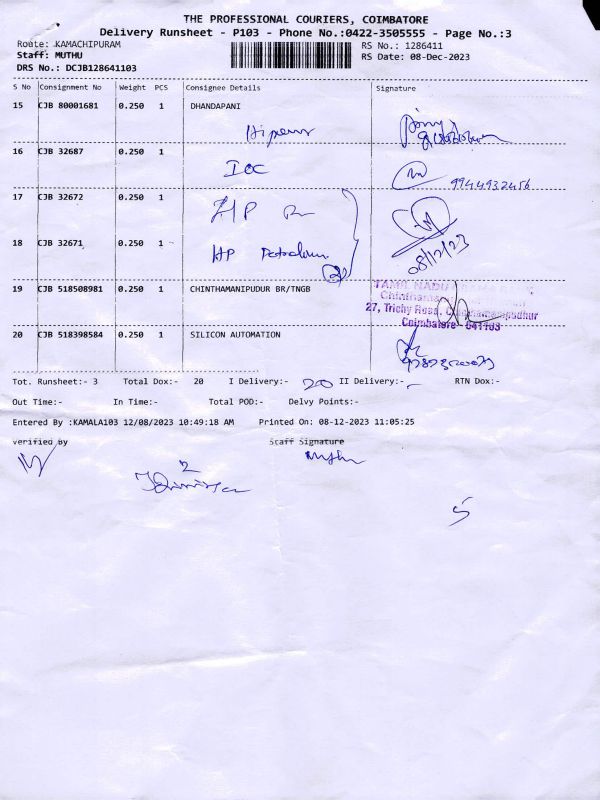 THE PROFESSIONAL COURIERS, COIMBATORE
Delivery Runsheet - P103 - Phone No.:0422-3505555 - Page No.:3
Route: KAMACHIPURAM RS No.: 1286411
Staff: MUTHU RS Date: 08-Dec-2023
DRS No.: DCJB128641103
S No Consignment No Weight PCS Consignee Details Signature
15 CJB 80001681 0.250 1 DHANDAPANI
16 CJB 32687 0.250 1 IOC 9944932456
17 CJB 32672 0.250 1 HP
18 CJB 32671 0.250 1 HP Petroleum 08/12/23
19 CJB 518508981 0.250 1 CHINTHAMANIPUDUR BR/TNGB TAMIL NADU
27, Trichy Road, Chinthamanipudhur
Coimbatore - 641103
20 CJB 518398584 0.250 1 SILICON AUTOMATION
Tot. Runsheet:- 3 Total Dox:- 20 I Delivery:- 20 II Delivery:- RTN Dox:-
Out Time:- In Time:- Total POD:- Delvy Points:-
Entered By :KAMALA103 12/08/2023 10:49:18 AM Printed On: 08-12-2023 11:05:25
verified by Scaff Signature
2
5